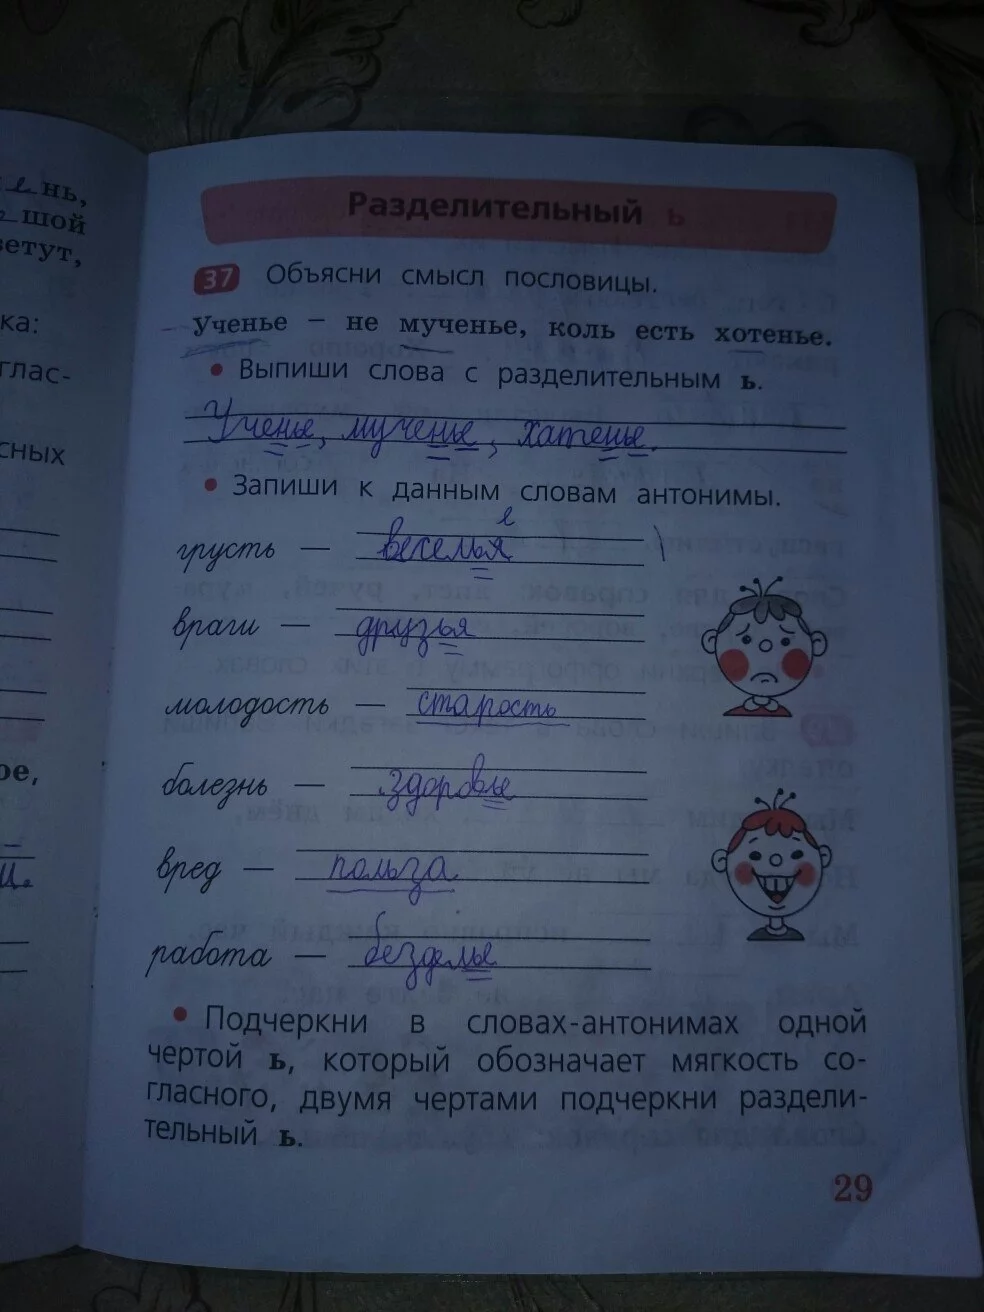 нь,
шой
ветут,
ка:
глас-
сных
ое,
Разделительный ь
37 Объясни смысл пословицы.
Ученье – не мученье, коль есть хотенье.
• Выпиши слова с разделительным ь.
Ученье, мученье, хатенье.
• Запиши к данным словам антонимы.
е
грусть — веселья
враги — друзья
молодость — старость
болезнь — здоровье
вред — польза
работа — безделье
• Подчеркни в словах-антонимах одной
чертой ь, который обозначает мягкость со-
гласного, двумя чертами подчеркни раздели-
тельный ь.
29